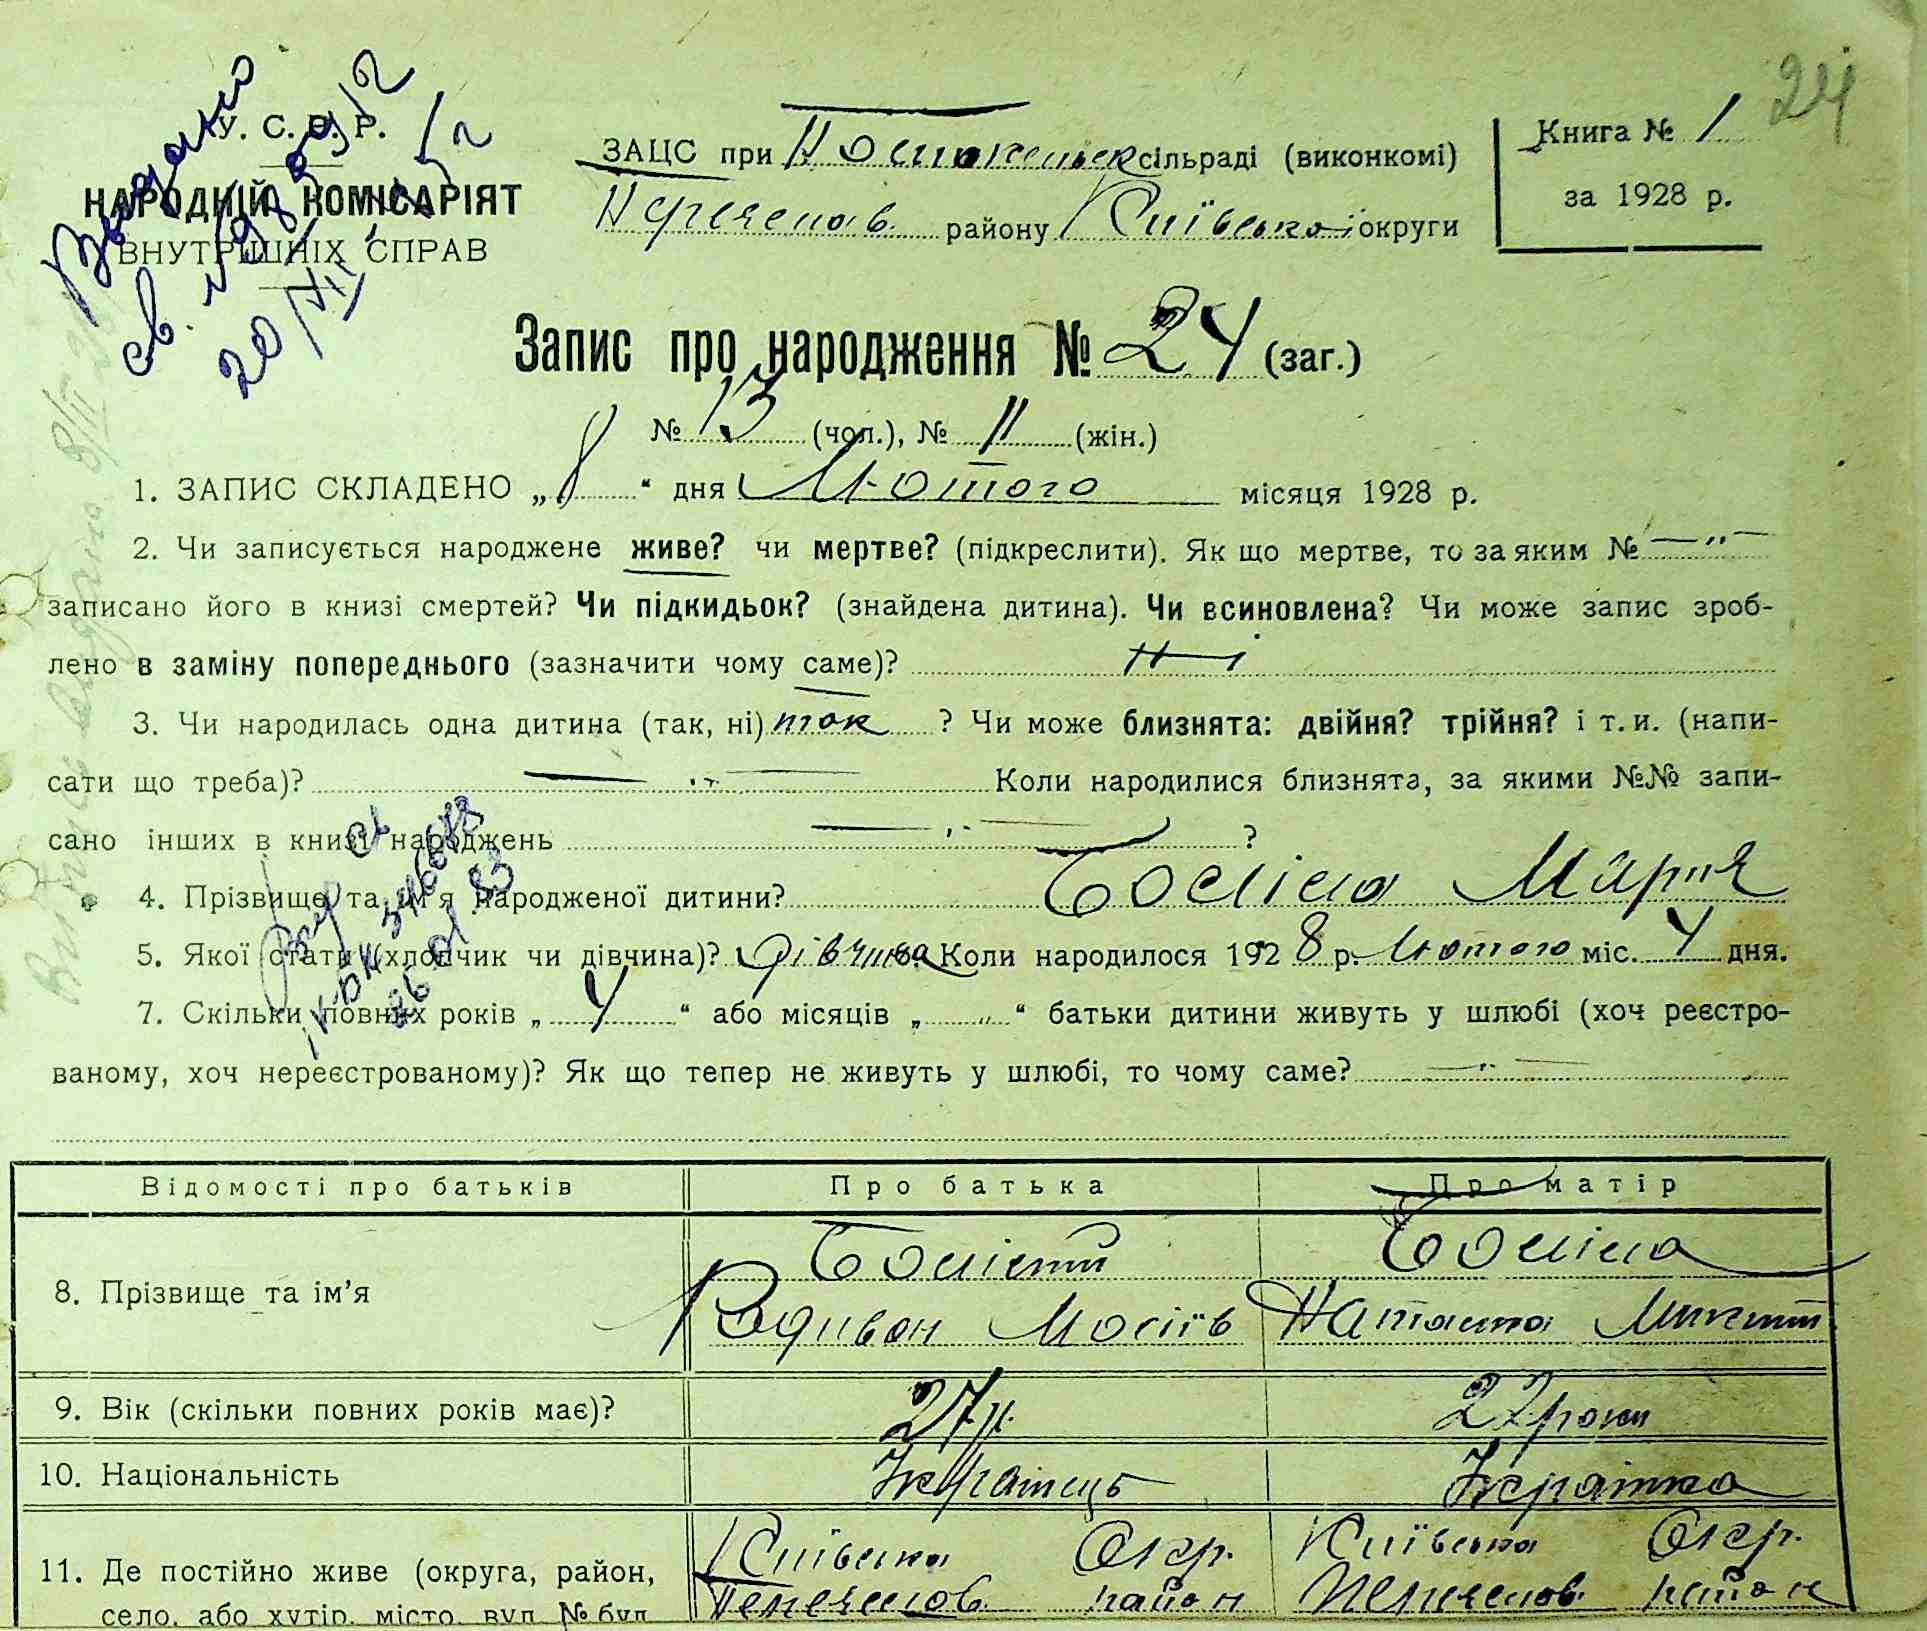 24
У. С. Р. Р.
НАРОДНІЙ КОМІСАРІЯТ
ВНУТРІШНІХ СПРАВ
Видано
св.
20/VII
ЗАЦС при сільраді (виконкомі)
району Київської округи
Книга № 1
за 1928 р.
Запис про народження № 24 (заг.)
№ 13 (чол.), № 11 (жін.)
1. ЗАПИС СКЛАДЕНО „8“ дня Лютого місяця 1928 р.
2. Чи записується народжене живе? чи мертве? (підкреслити). Як що мертве, то за яким № —„—
записано його в книзі смертей? Чи підкидьок? (знайдена дитина). Чи всиновлена? Чи може запис зроб-
лено в заміну попереднього (зазначити чому саме)? Ні
3. Чи народилась одна дитина (так, ні) так ? Чи може близнята: двійня? трійня? і т. и. (напи-
сати що треба)? —„— Коли народилися близнята, за якими №№ запи-
сано інших в книзі народжень —„— ?
4. Прізвище та ім'я народженої дитини? Марія
5. Якої стати (хлопчик чи дівчина)? дівчина Коли народилося 1928 р. Лютого міс. 4 дня.
7. Скільки повних років „4“ або місяців „ „ “ батьки дитини живуть у шлюбі (хоч реєстро-
ваному, хоч нереєстрованому)? Як що тепер не живуть у шлюбі, то чому саме? —„—
Відомості про батьків Про батька Про матір
8. Прізвище та ім'я
Родивон Мосіїв Наташка Микит
9. Вік (скільки повних років має)? 27 р. 22 роки
10. Національність Українець Українка
11. Де постійно живе (округа, район, Київська Окр. Київська Окр.
село, або хутір, місто, вул., № буд. район район